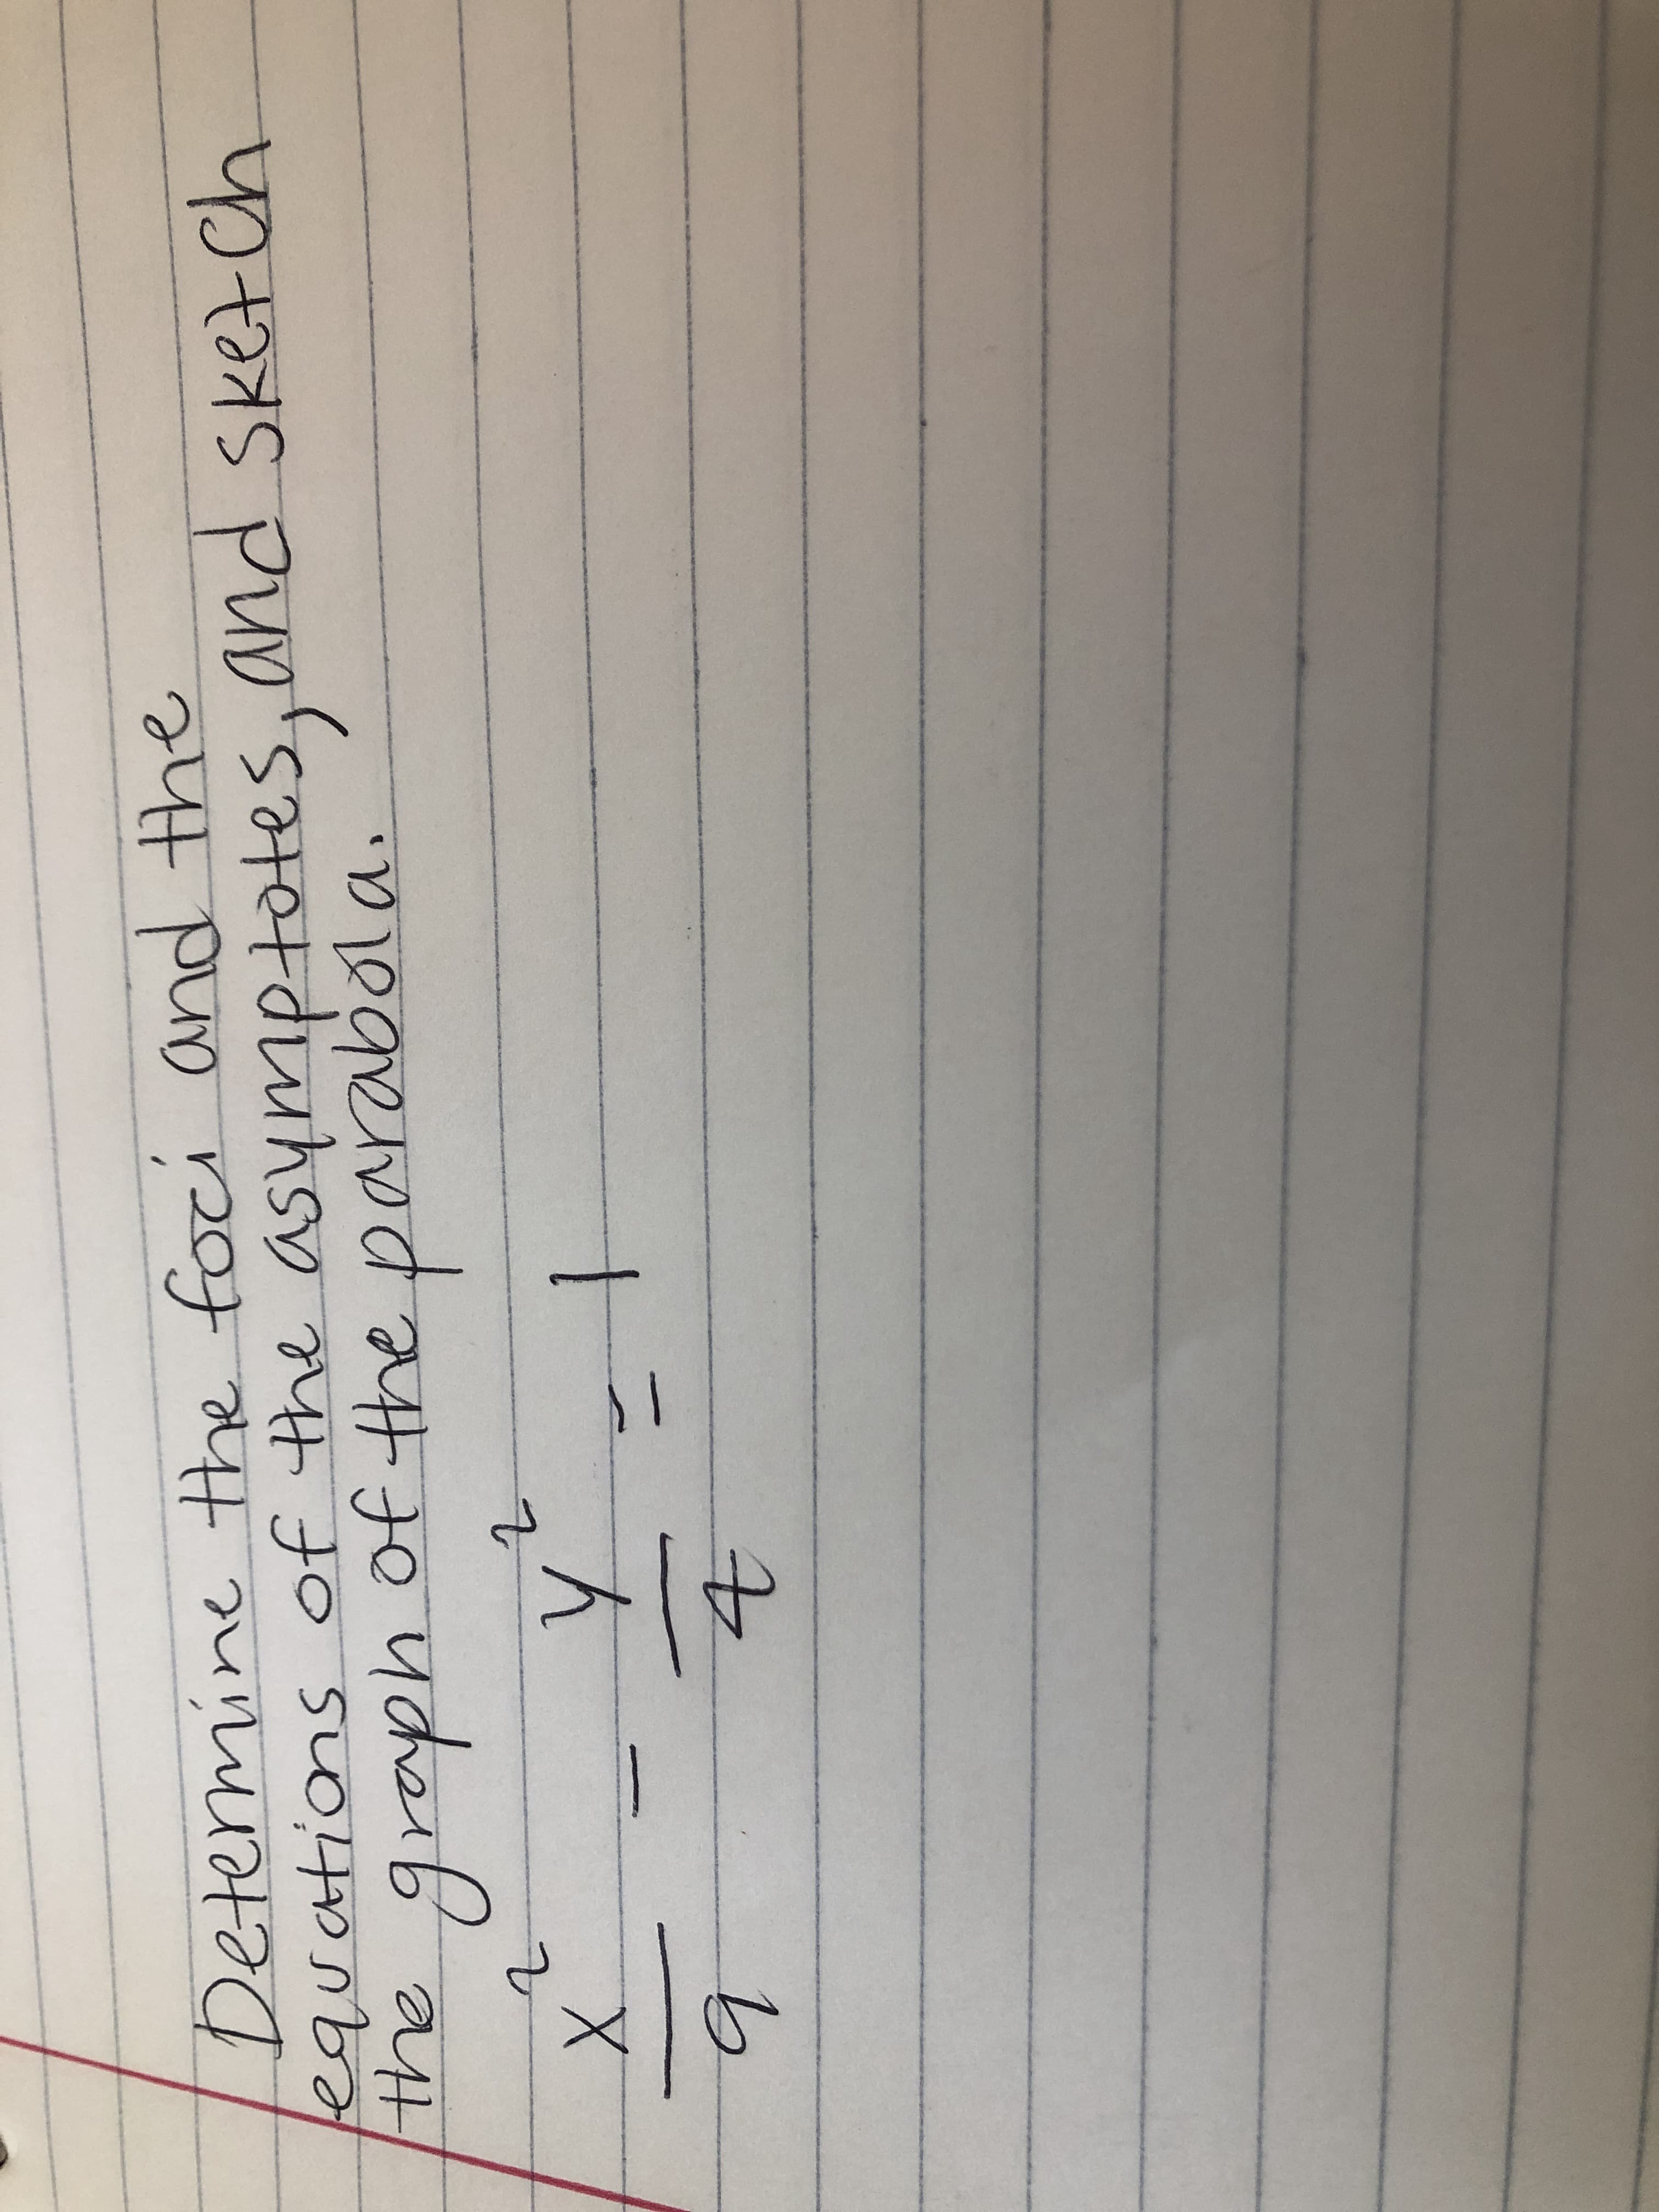 Determine the foci and the
equations of the asymptotes, and sketch
the graph of the parabola.
x² / 9 - y² / 4 = 1